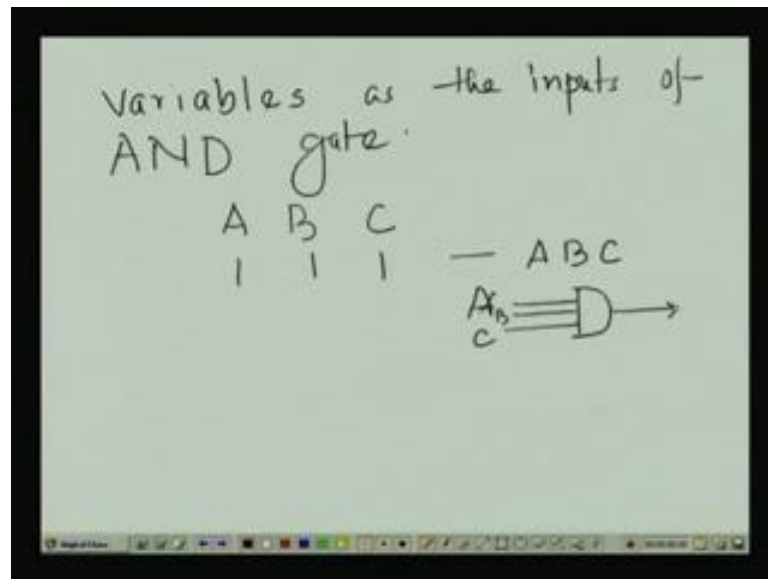 variables as the inputs of
AND gate.
A B C
1 1 1 — ABC
A
B
C